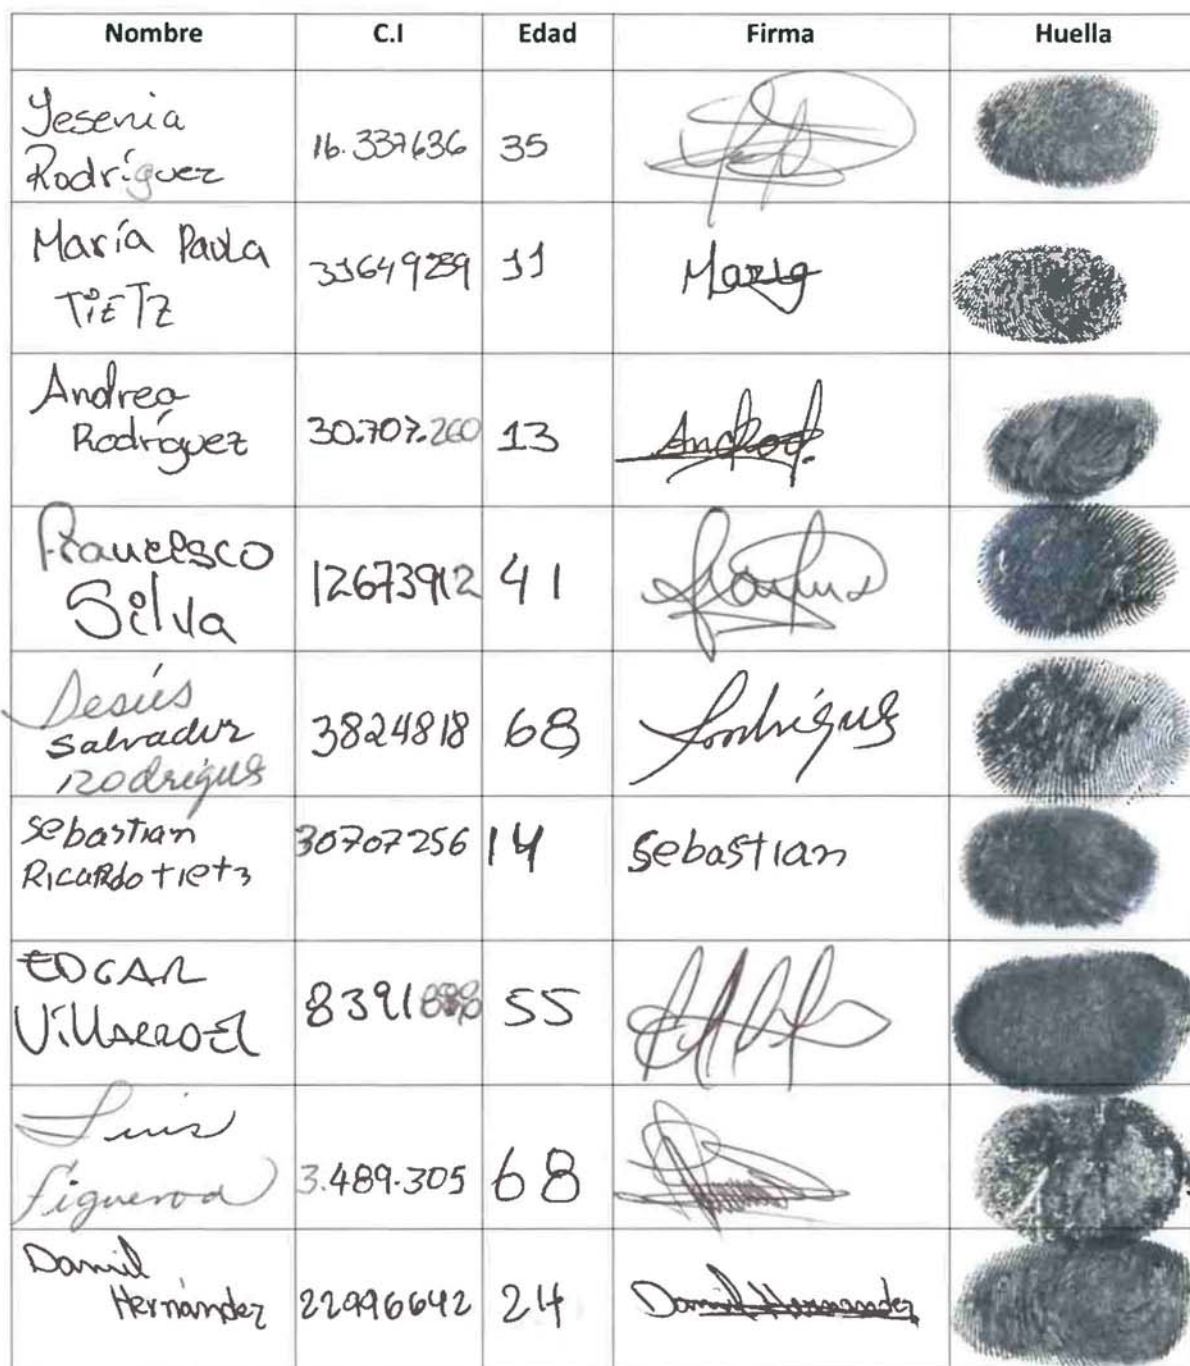 Nombre C.I Edad Firma Huella
Yesenia
Rodríguez 16.337636 35
María Paula
TiETz 31649289 11 María
Andrea
Rodríguez 30.707.260 13
Francesco
Silva 12673912 41
Jesús
Salvador
Rodrigues 3824818 68 Rodrigues
Sebastian
Ricardo tietz 30707256 14 Sebastian
EDGAR
Villarroel 8391 55
Luis
Figueroa 3.489.305 68
Daniel
Hernández 22996642 24 Daniel Hernandez